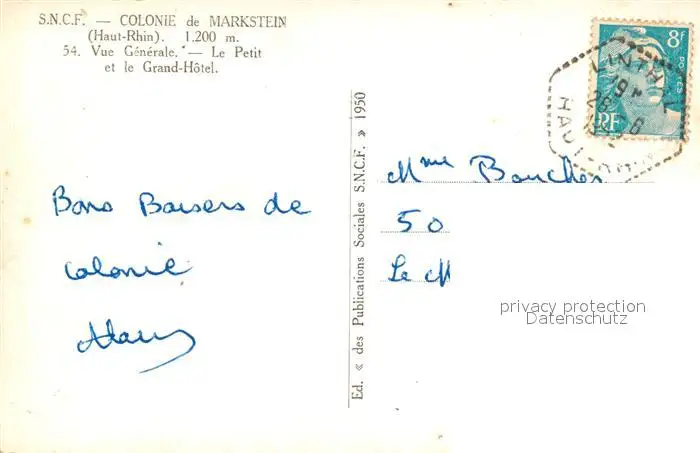 S.N.C.F. — COLONIE de MARKSTEIN
(Haut-Rhin). 1.200 m.
54. Vue Générale. — Le Petit
et le Grand-Hôtel.
Bons Baisers de
Colonie
Ed. « des Publications Sociales S.N.C.F. » 1950
8f
POSTES
RF
LINTHAL
HAUT-RHIN
Mme Boucher
50
Le M
privacy protection
Datenschutz